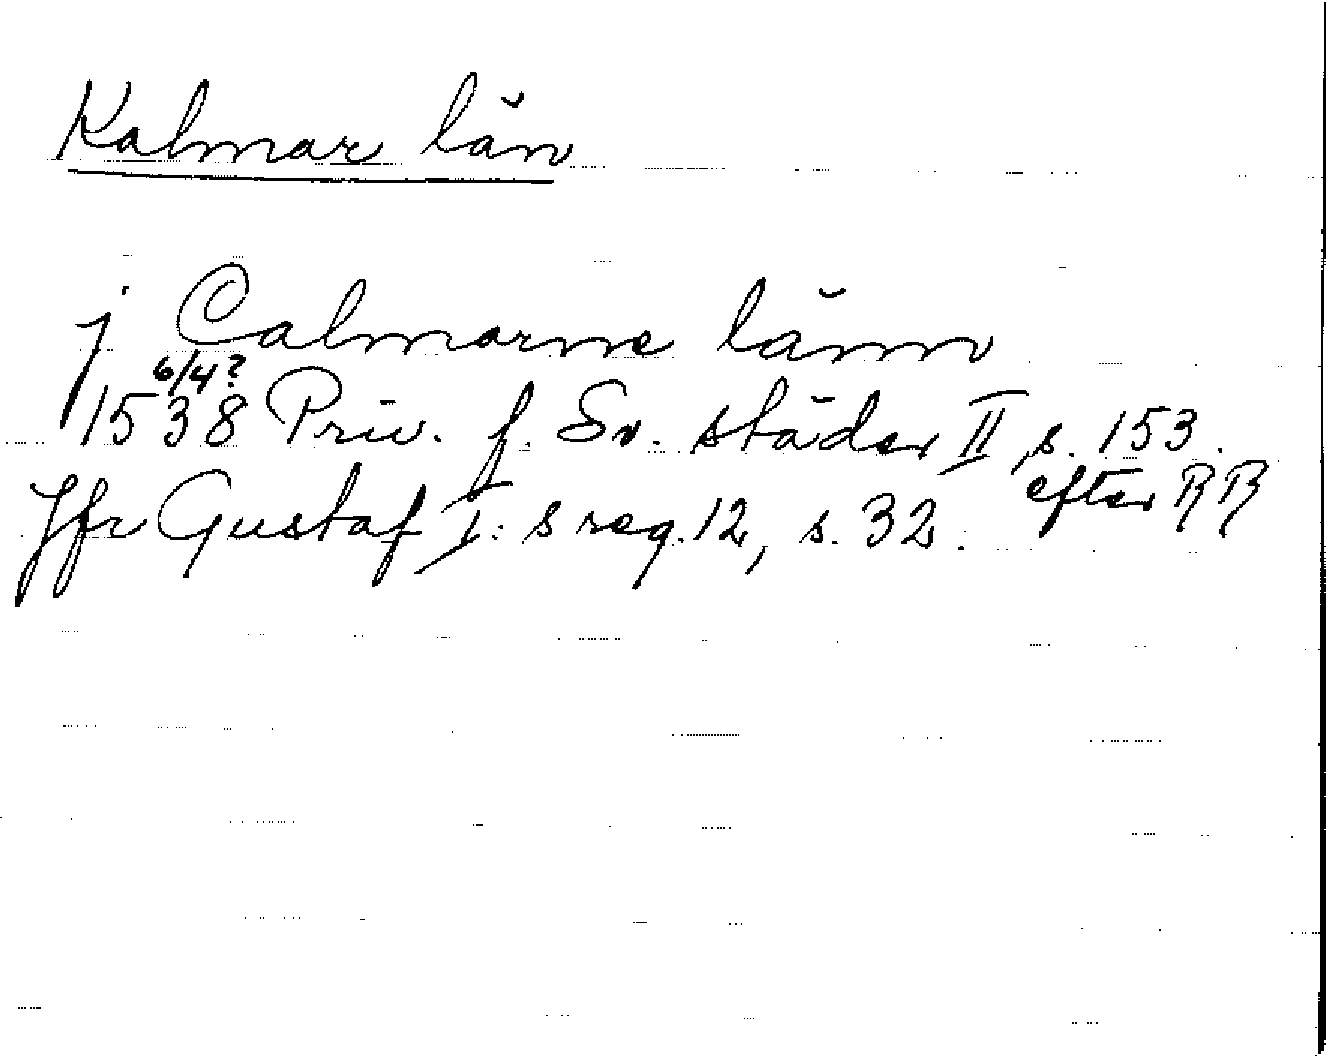 Kalmar län
j Calmarne länn
6/4?
1538 Priv. f. Sv. städer II, s. 153.
efter RR
Jfr Gustaf I:s reg. 12, s. 32.